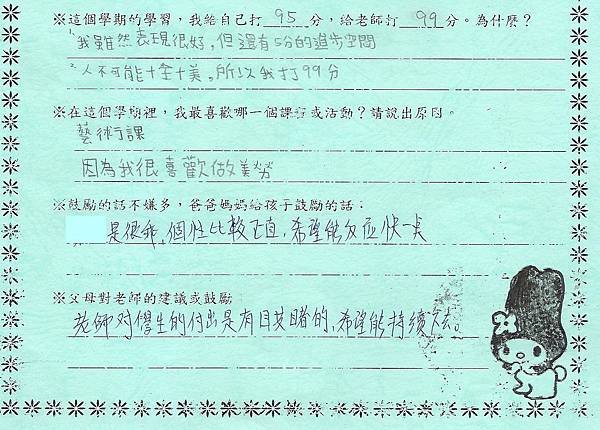 ※這個學期的學習，我給自己打 95 分，給老師打 99 分。為什麼？
1.我雖然表現很好，但還有5分的進步空間
2.人不可能十全十美。所以我打99分
※在這個學期裡，我最喜歡哪一個課程或活動？請說出原因。
藝術課
因為我很喜歡做美勞
※鼓勵的話不嫌多，爸爸媽媽給孩子鼓勵的話：
是很乖，個性比較正直，希望能反應快一点
※父母對老師的建議或鼓勵
老師對學生的付出是有目共睹的，希望能持續下去。